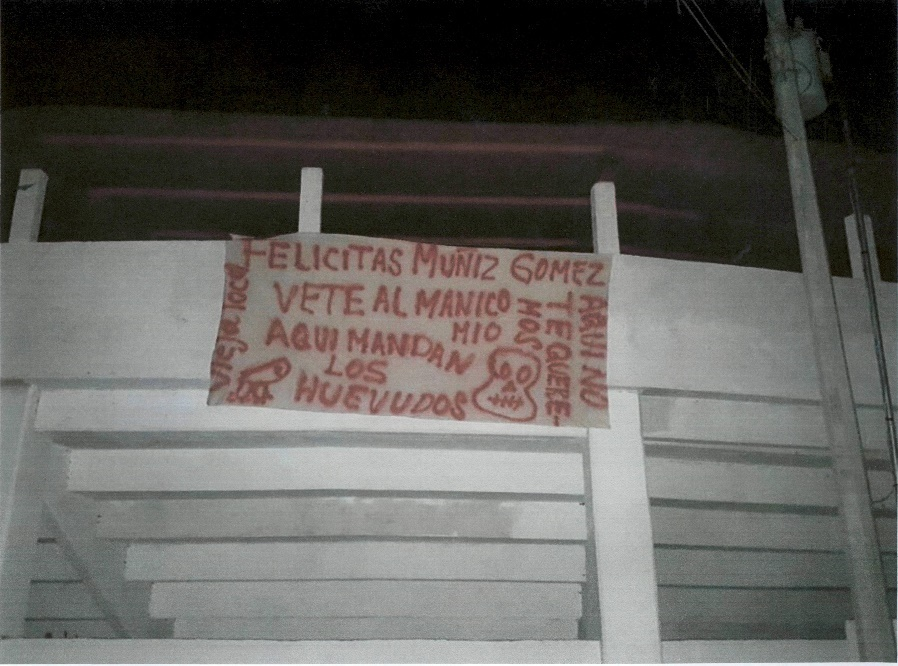 FELICITAS MUÑIZ GOMEZ
VETE AL MANICO
MIO
AQUI MANDAN
LOS
HUEVUDOS
vieja loca
AQUI NO
TE QUERE-
MOS